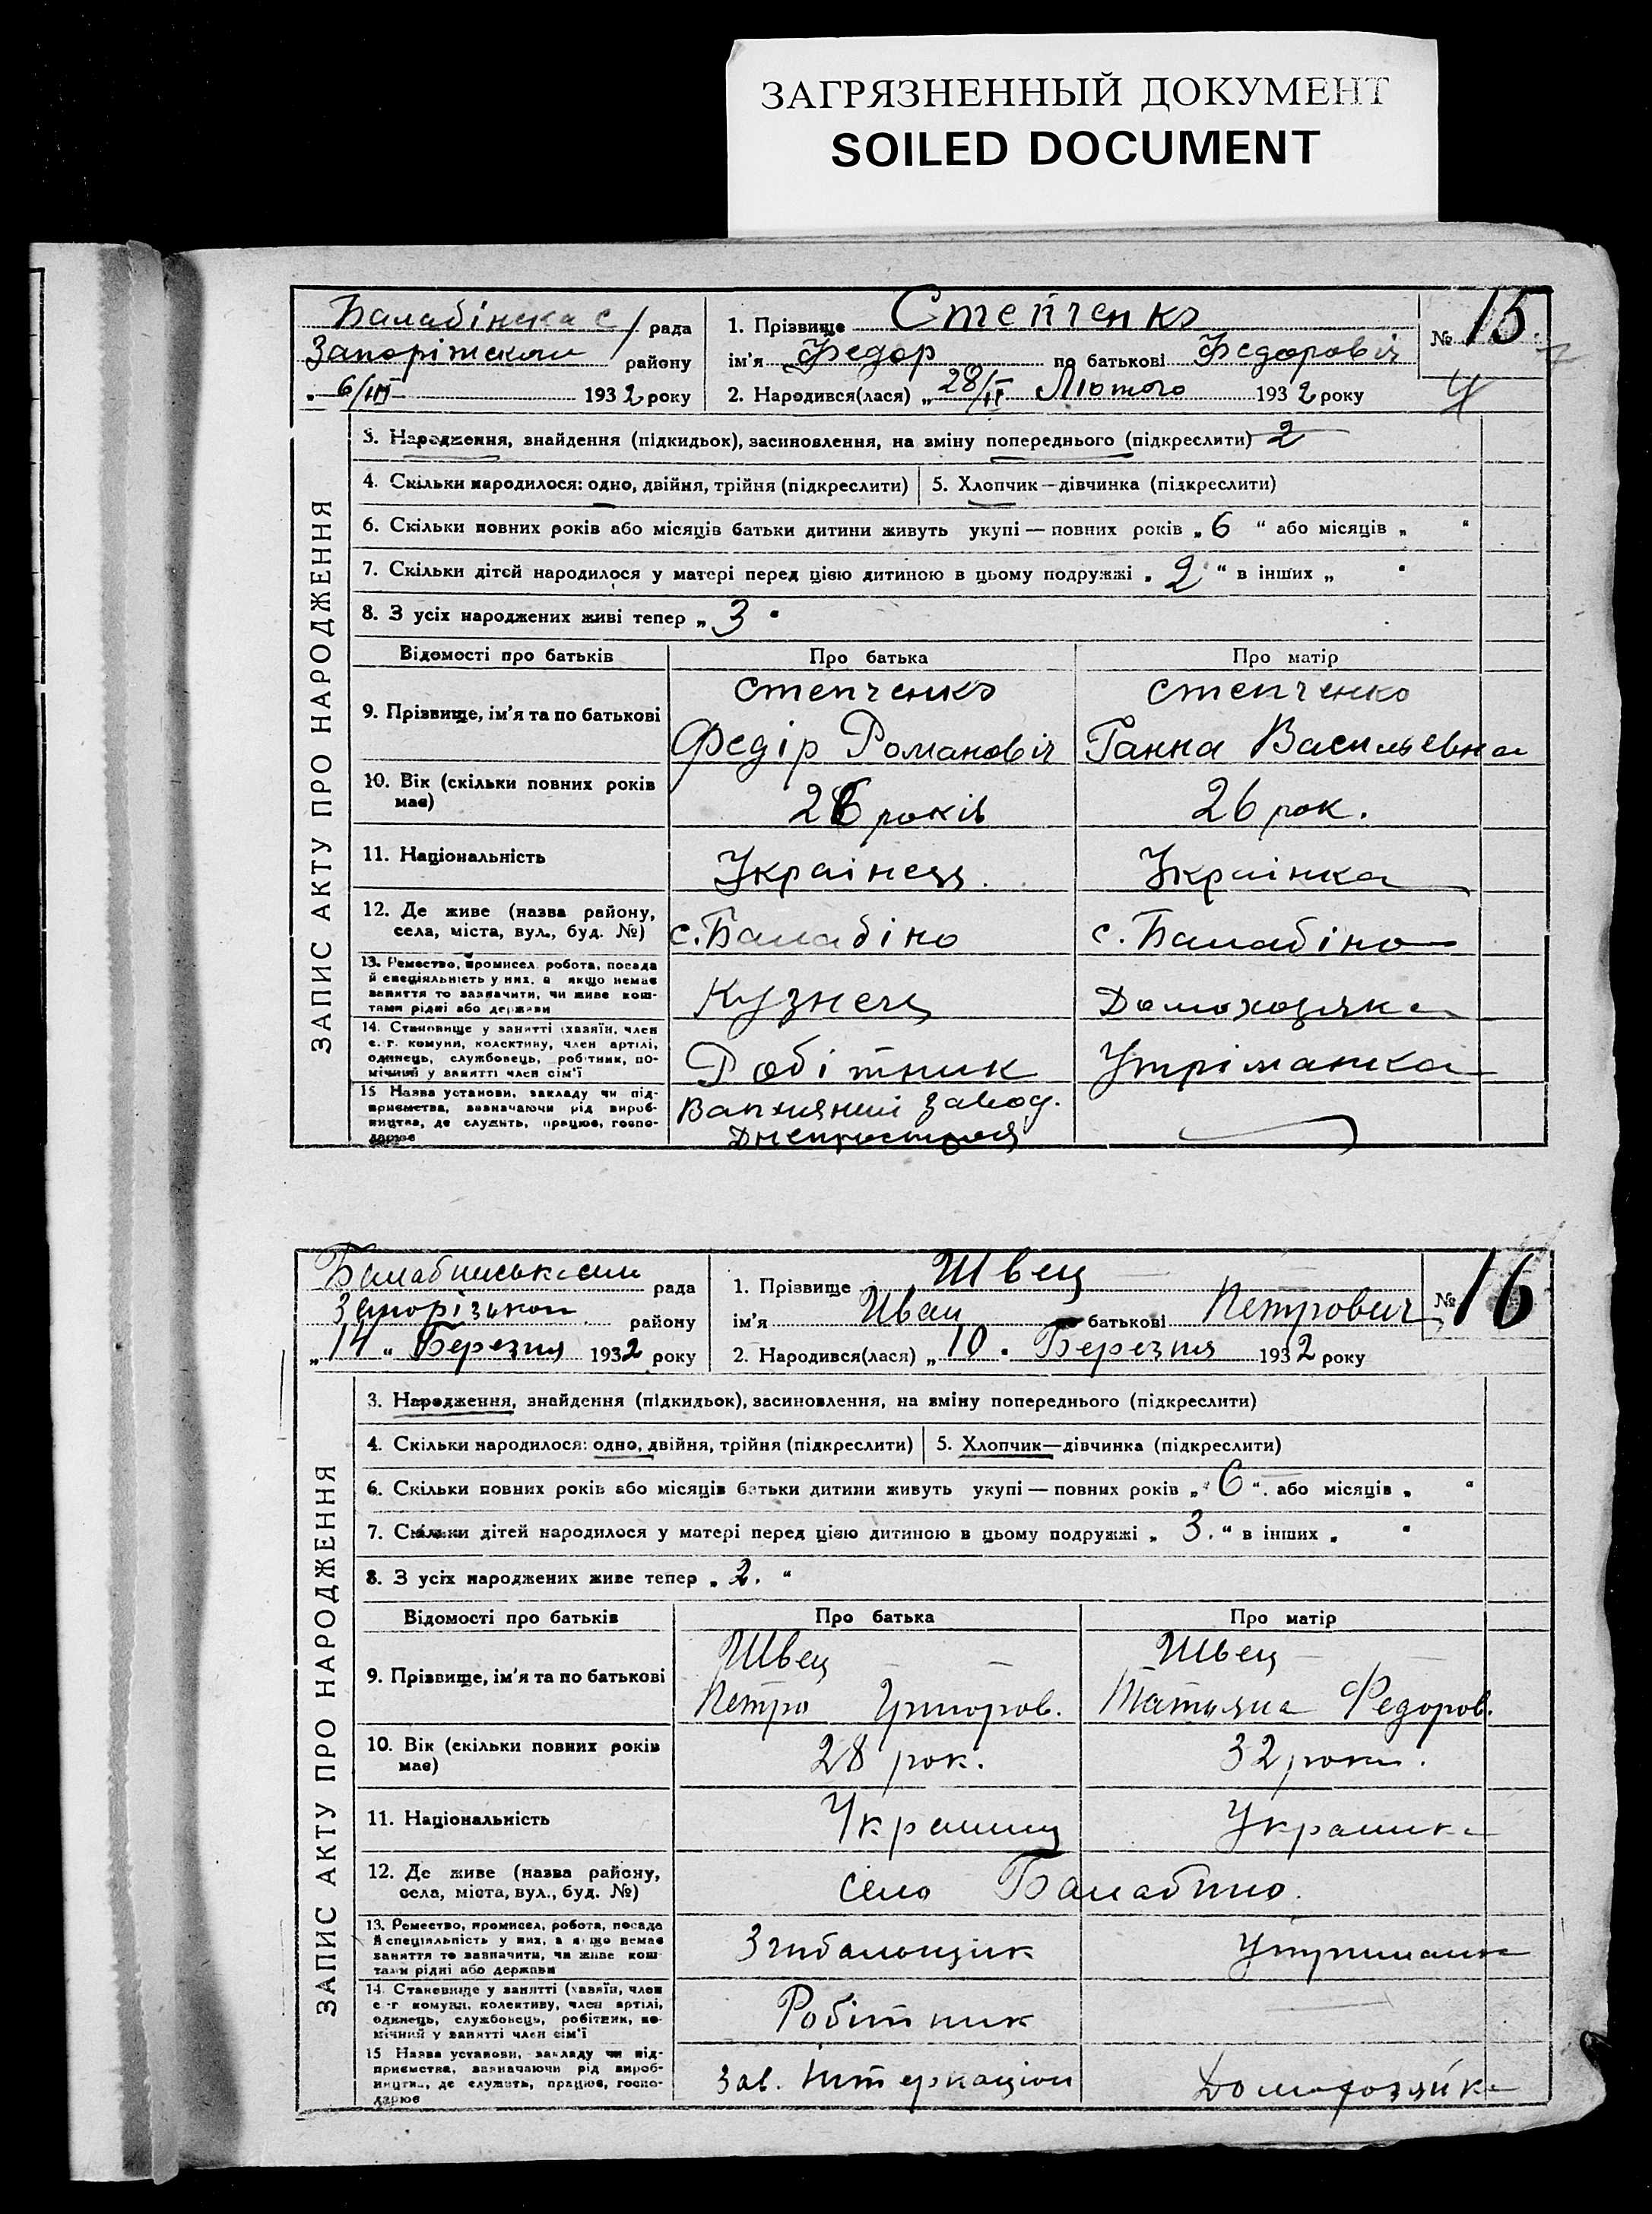 ЗАГРЯЗНЕННЫЙ ДОКУМЕНТ
SOILED DOCUMENT
Балабінска с/рада
Запоріжскои району
„ 6/III 1932 року
1. Прізвище Степченко
ім'я Федор по батькові Федоровіч
2. Народився(лася) „28/II Лютого 1932 року
№ 15.
ЗАПИС АКТУ ПРО НАРОДЖЕННЯ
3. Народження, знайдення (підкидьок), засиновлення, на зміну попереднього (підкреслити) 2
4. Скільки народилося: одно, двійня, трійня (підкреслити)
5. Хлопчик—дівчинка (підкреслити)
6. Скільки повних років або місяців батьки дитини живуть укупі — повних років „ 6 “ або місяців „ “
7. Скільки дітей народилося у матері перед цією дитиною в цьому подружжі „ 2 “ в інших „ “
8. З усіх народжених живі тепер „ 3 “
Відомості про батьків Про батька Про матір
9. Прізвище, ім'я та по батькові
Степченко
Федір Романовіч
Степченко
Ганна Васильевна
10. Вік (скільки повних років має)
26 років
26 рок.
11. Національність
Українець.
Українка
12. Де живе (назва району, села, міста, вул., буд. №)
с. Балабіно
с. Балабіно
13. Ремество, промисел, робота, посада
й спеціяльність у них, а якщо немає
заняття то зазначити, чи живе кош-
тами рідні або держави
Кузнец
Домохозяика
14. Становище у занятті (хазяїн, член
с.-г. комуни, колективу, член артілі,
одинець, службовець, робітник, по-
мічний у занятті член сім'ї
Робітник
Утріманка
15 Назва установи, закладу чи під-
приємства, зазначаючи рід вироб-
ництва, де служить, працює, госпо-
дарює
Вапняний завод.
Днепростроя
Балабинськ
Запорізькои району
рада
„14“ Березня 1932 року
1. Прізвище Швец
ім'я Иван батькові Петрович
2. Народився(лася) „10. Березня 1932 року
№ 16
ЗАПИС АКТУ ПРО НАРОДЖЕННЯ
3. Народження, знайдення (підкидьок), засиновлення, на зміну попереднього (підкреслити)
4. Скільки народилося: одно, двійня, трійня (підкреслити)
5. Хлопчик—дівчинка (підкреслити)
6. Скільки повних років або місяців батьки дитини живуть укупі — повних років „ 6 “ або місяців „ “
7. Скільки дітей народилося у матері перед цією дитиною в цьому подружжі „ 3. “ в інших „ “
8. З усіх народжених живе тепер „ 2. “
Відомості про батьків Про батька Про матір
9. Прізвище, ім'я та по батькові
Швец
Петро Григоров.
Швец
Татьяна Федоров.
10. Вік (скільки повних років має)
28 рок.
32 роки.
11. Національність
Украинец
Украинка
12. Де живе (назва району, села, міста, вул., буд. №)
село Балабино.
13. Ремество, промисел, робота, посада
й спеціяльність у них, а якщо немає
заняття то зазначити, чи живе кош-
тами рідні або держави
Утриманка
14. Становище у занятті (хазяїн, член
с-г комуни, колективу, член артілі,
одинець, службовець, робітник, по-
мічний у занятті член сім'ї
Робітник
15 Назва установи, закладу чи під-
приємства, зазначаючи рід вироб-
ництва, де служить, працює, госпо-
дарює
Зав. Интернаціон
Домохозяйка